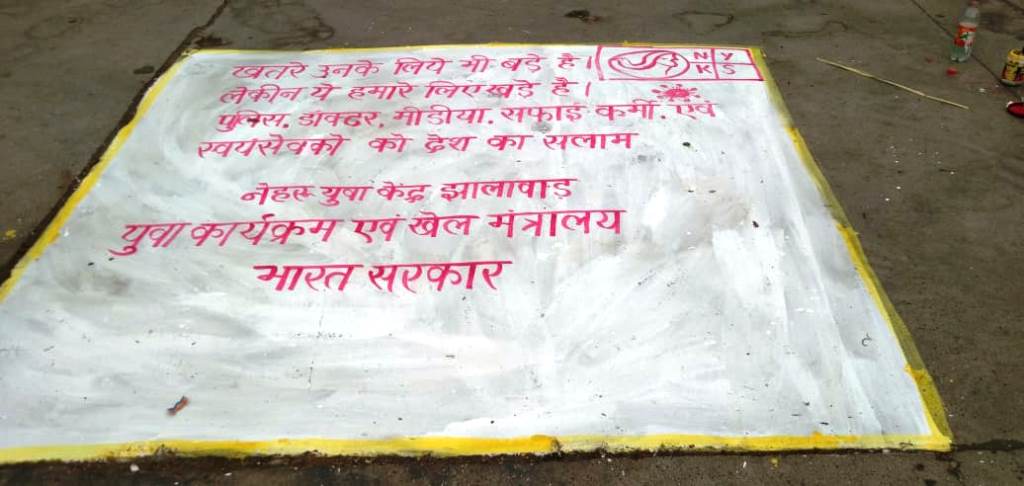 खतरे उनके लिये भी बड़े है।
लेकीन ये हमारे लिए खड़े है।
पुलिस. डॉक्टर, मीडीया. सफाई कर्मी. एवं
स्वयसेवको को देश का सलाम
नेहरू युवा केंद्र झालावाड़
युवा कार्यक्रम एवं खेल मंत्रालय
भारत सरकार
N Y
K S